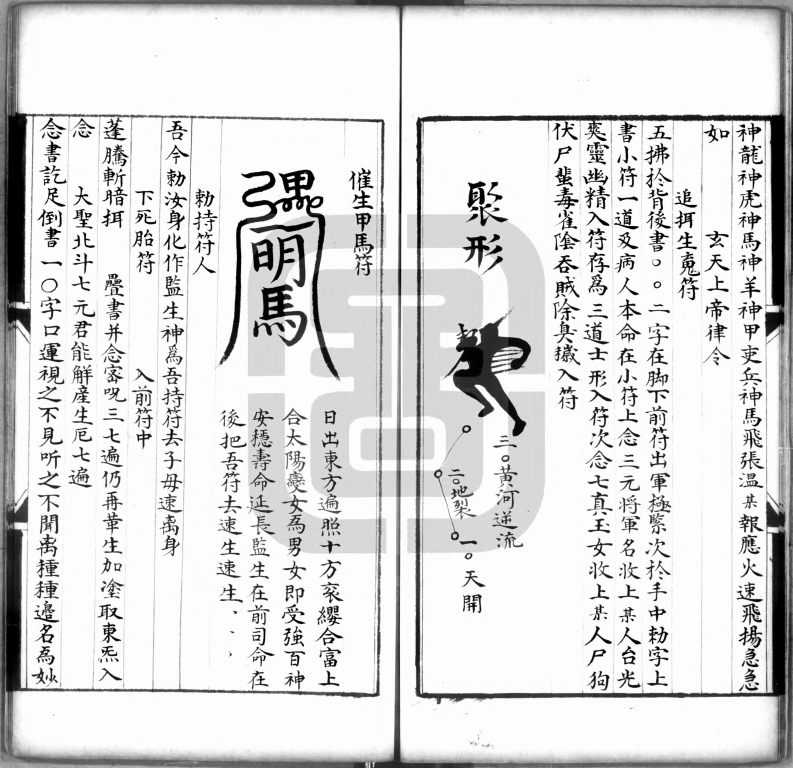 神龍神虎神馬神羊神甲吏兵神馬飛張溫某報應火速飛揚急急
如　玄天上帝律令
追捐生魂符
五拂於背後書○○二字在脚下前符出軍極緊次於手中勅字上
書小符一道及病人本命在小符上念三元將軍名收上某人台光
爽靈幽精入符存爲三道士形入符次念七真玉女收上某人尸狗
伏尸蜚毒雀陰吞賊除臭穢入符
聚形
三○黃河逆流
二○地裂
一○天開
催生甲馬符
明馬
日出東方遍照十方衮纓合富上
合太陽變女為男女即受強百神
安穩壽命延長監生在前司命在
後把吾符去速生速生、、、
勅持符人
吾今勅汝身化作監生神爲吾持符去子母速离身
下死胎符　入前符中
蓬騰斬暗捐　疊書并念密呪三七遍仍再華生加塗取東炁入
念　大聖北斗七元君能解產生厄七遍
念書訖足倒書一○字口運視之不見听之不聞离種種邊名為妙